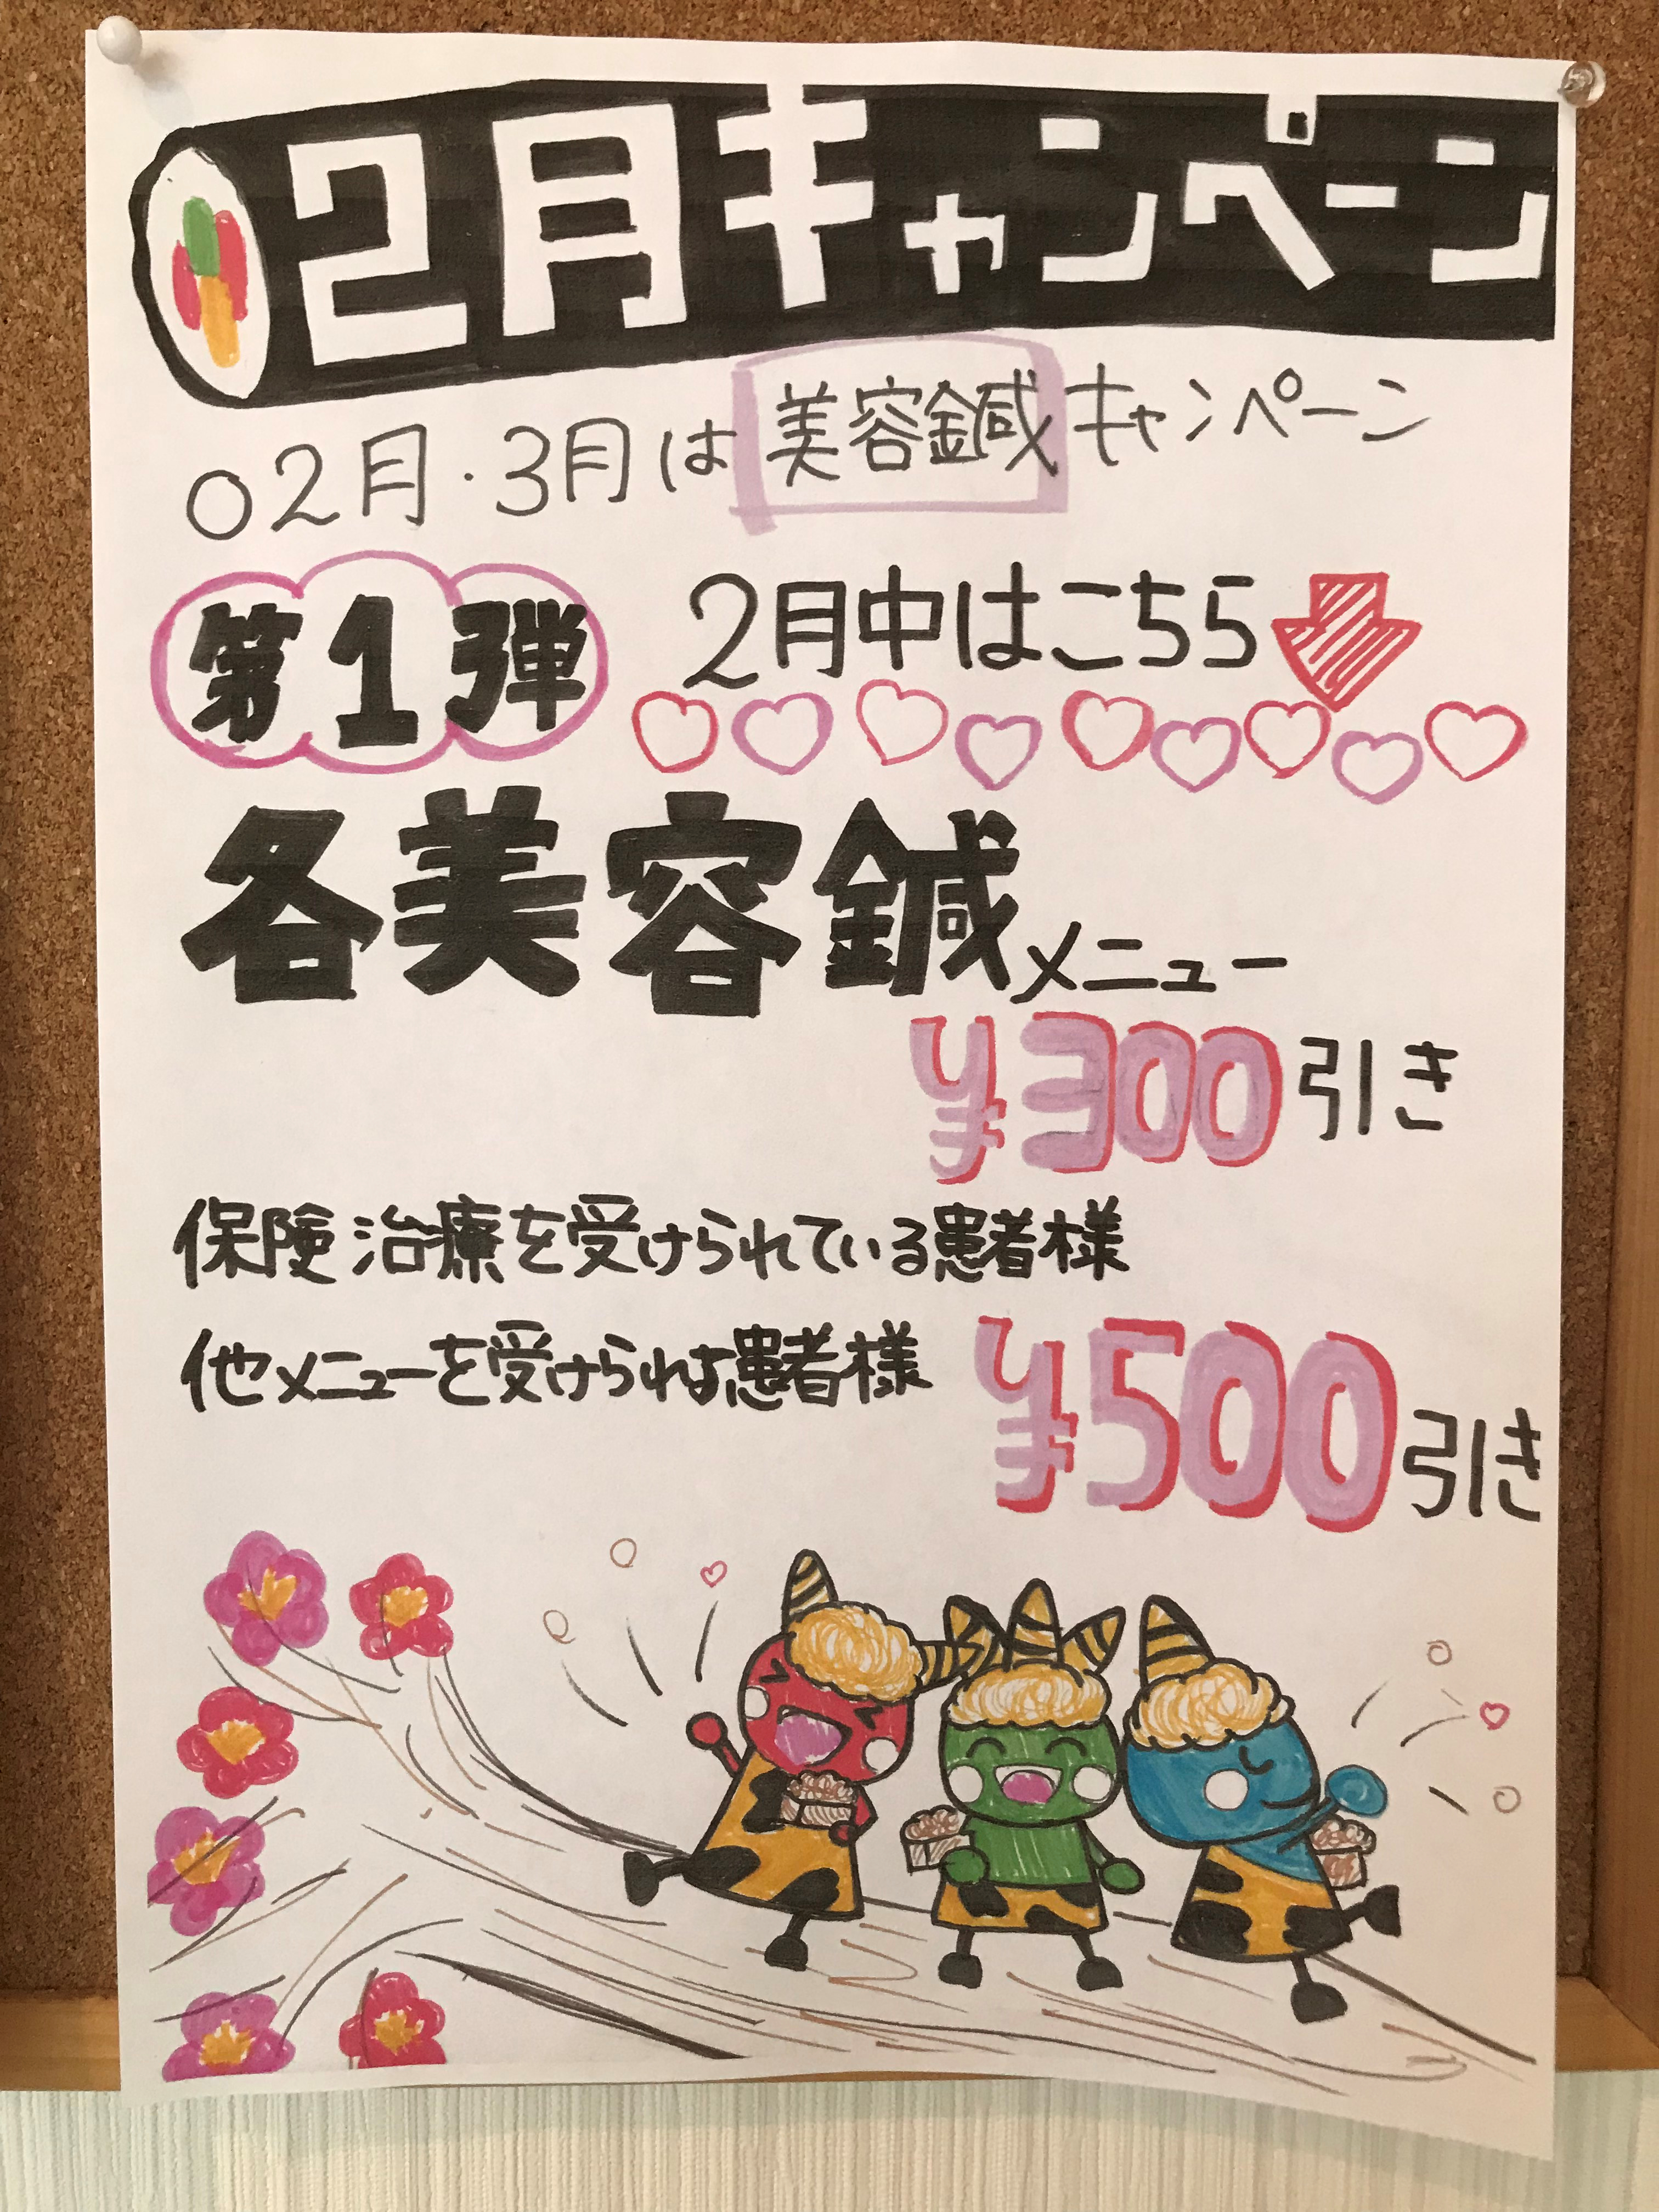 2月キャンペーン
○2月・3月は美容鍼キャンペーン
第1弾 2月中はこちら
各美容鍼メニュー
¥300引き
保険治療を受けられている患者様
他メニューを受けられる患者様
¥500引き